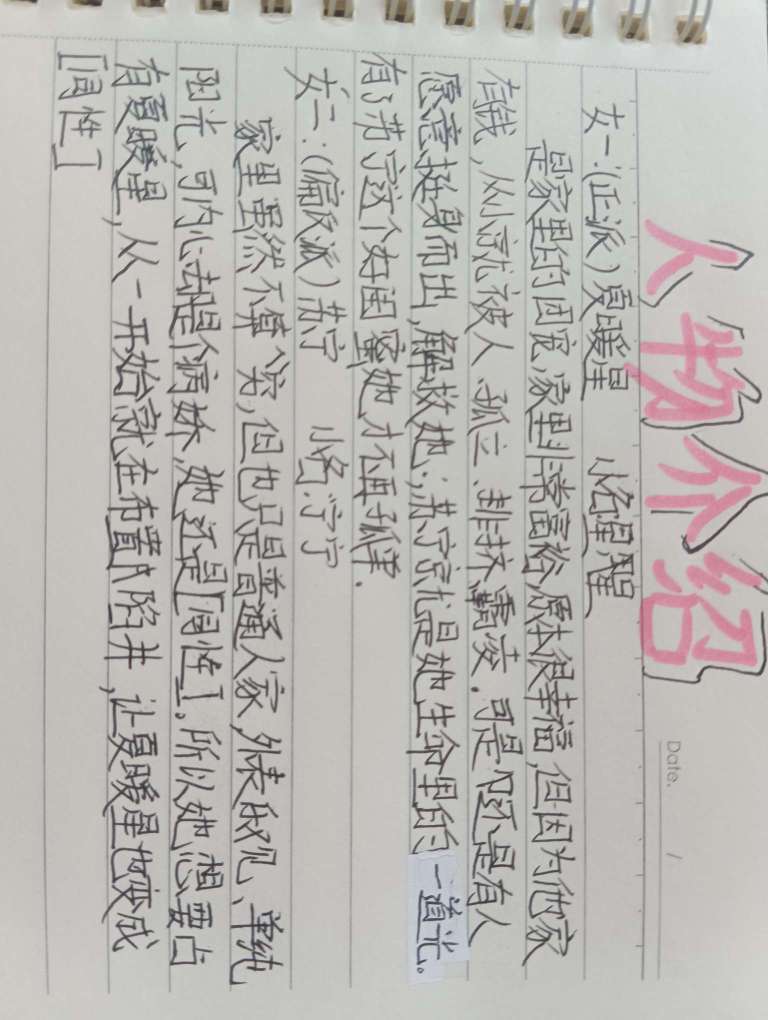 人物介绍
Date. /
女一:(正派)夏暖星 小名:星星
是家里的团宠,家里非常富裕,原本很幸福,但因为他家
有钱,从小就被人孤立、排挤、霸凌。可是还是有人
愿意挺身而出,解救她;苏宁就是她生命里的一道光。
有了苏宁这个好闺蜜她才不再孤单.
女二:(偏反派)苏宁 小名:宁宁
家里虽然不算穷,但也只是普通人家,外表乐观、单纯
阳光,可内心却是个病娇,她还是[同性],所以她想要占
有夏暖星,从一开始就在布置陷井,让夏暖星也变成
[同性]